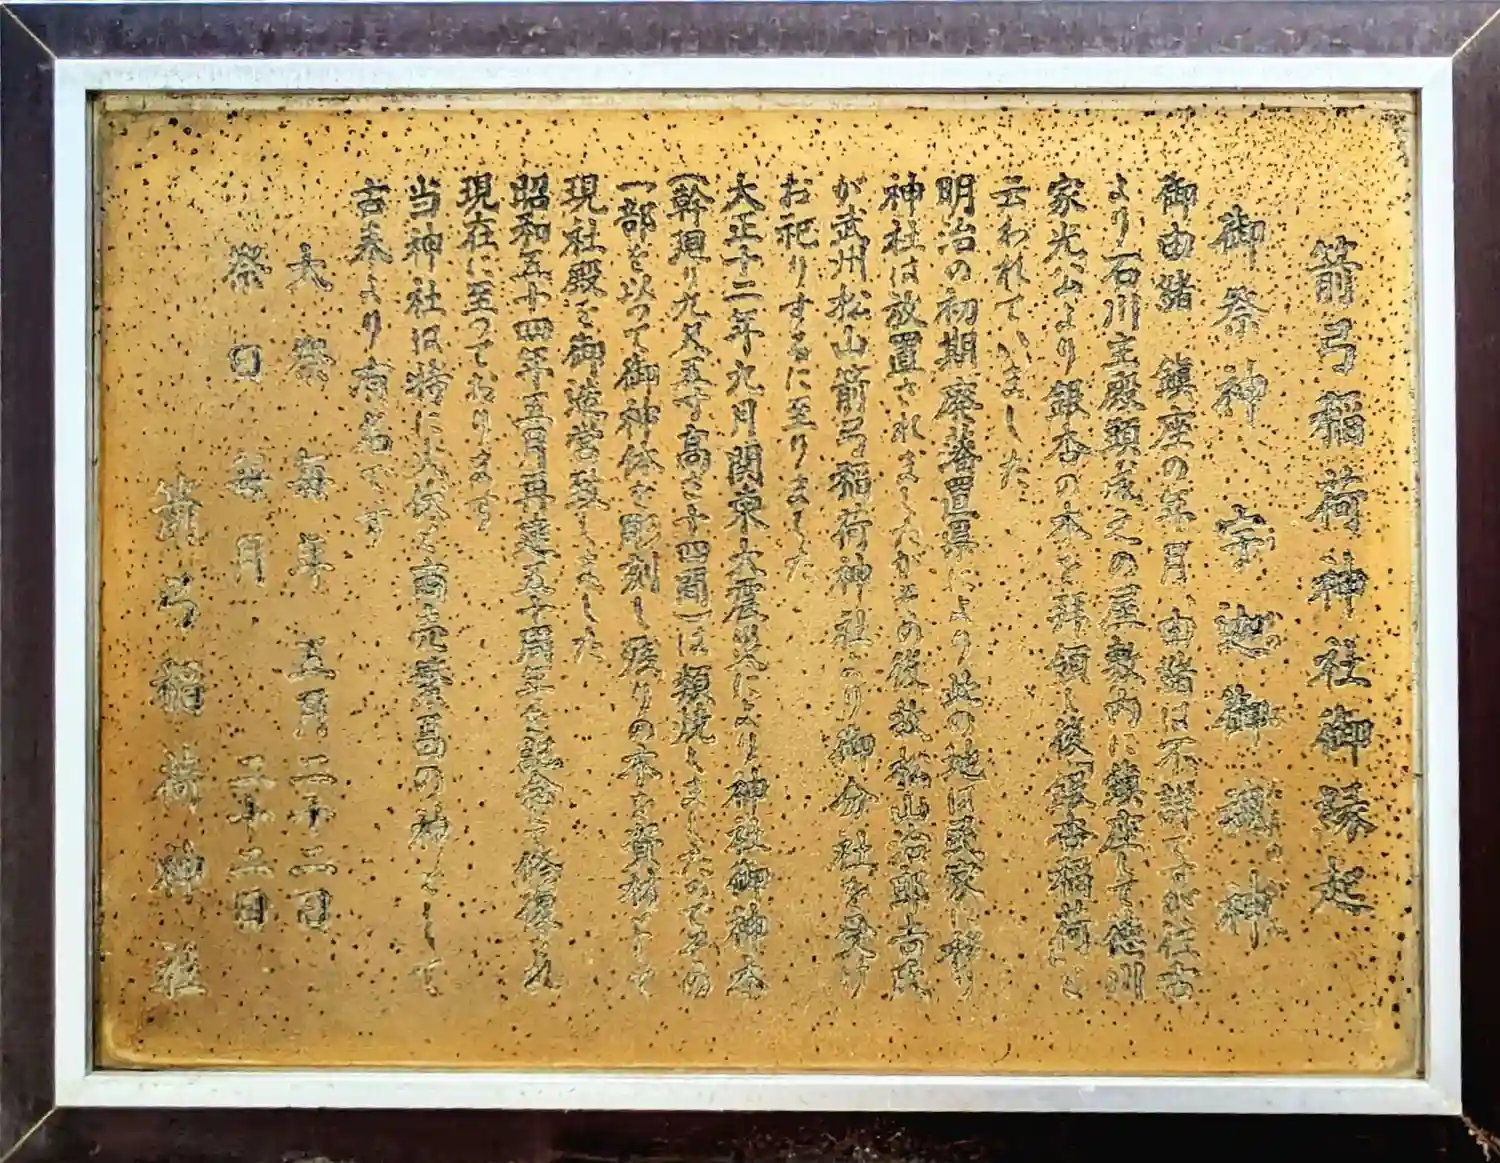 箭弓稲荷神社御縁起
御祭神 宇迦御魂神
御由緒 鎮座の年月、由緒は不詳ですが往古
より石川主殿頭成之の屋敷内に鎮座して徳川
家光公より銀杏の木を拝領し後「銀杏稲荷」と
云われていました
明治の初期廃藩置県により此の地は民家に移り
神社は放置されましたがその後故松山治郎吉氏
が武州松山箭弓稲荷神社より御分社を受け
お祀りするに至りました
大正十二年九月関東大震災により神社御神木
(幹廻り九尺五寸高さ十四間)は類焼しましたのでその
一部を以って御神体を彫刻し残りの木を資材として
現社殿を御造営致しました
昭和五十四年五月再建五十周年を記念して修復され
現在に至っております
当神社は特に火伏と商売繁昌の神として
古来より有名です
大祭 毎年 五月二十二日
祭日 毎月 二十二日
箭弓稲荷神社